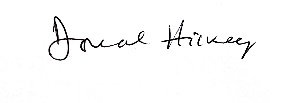 Donal Hickey